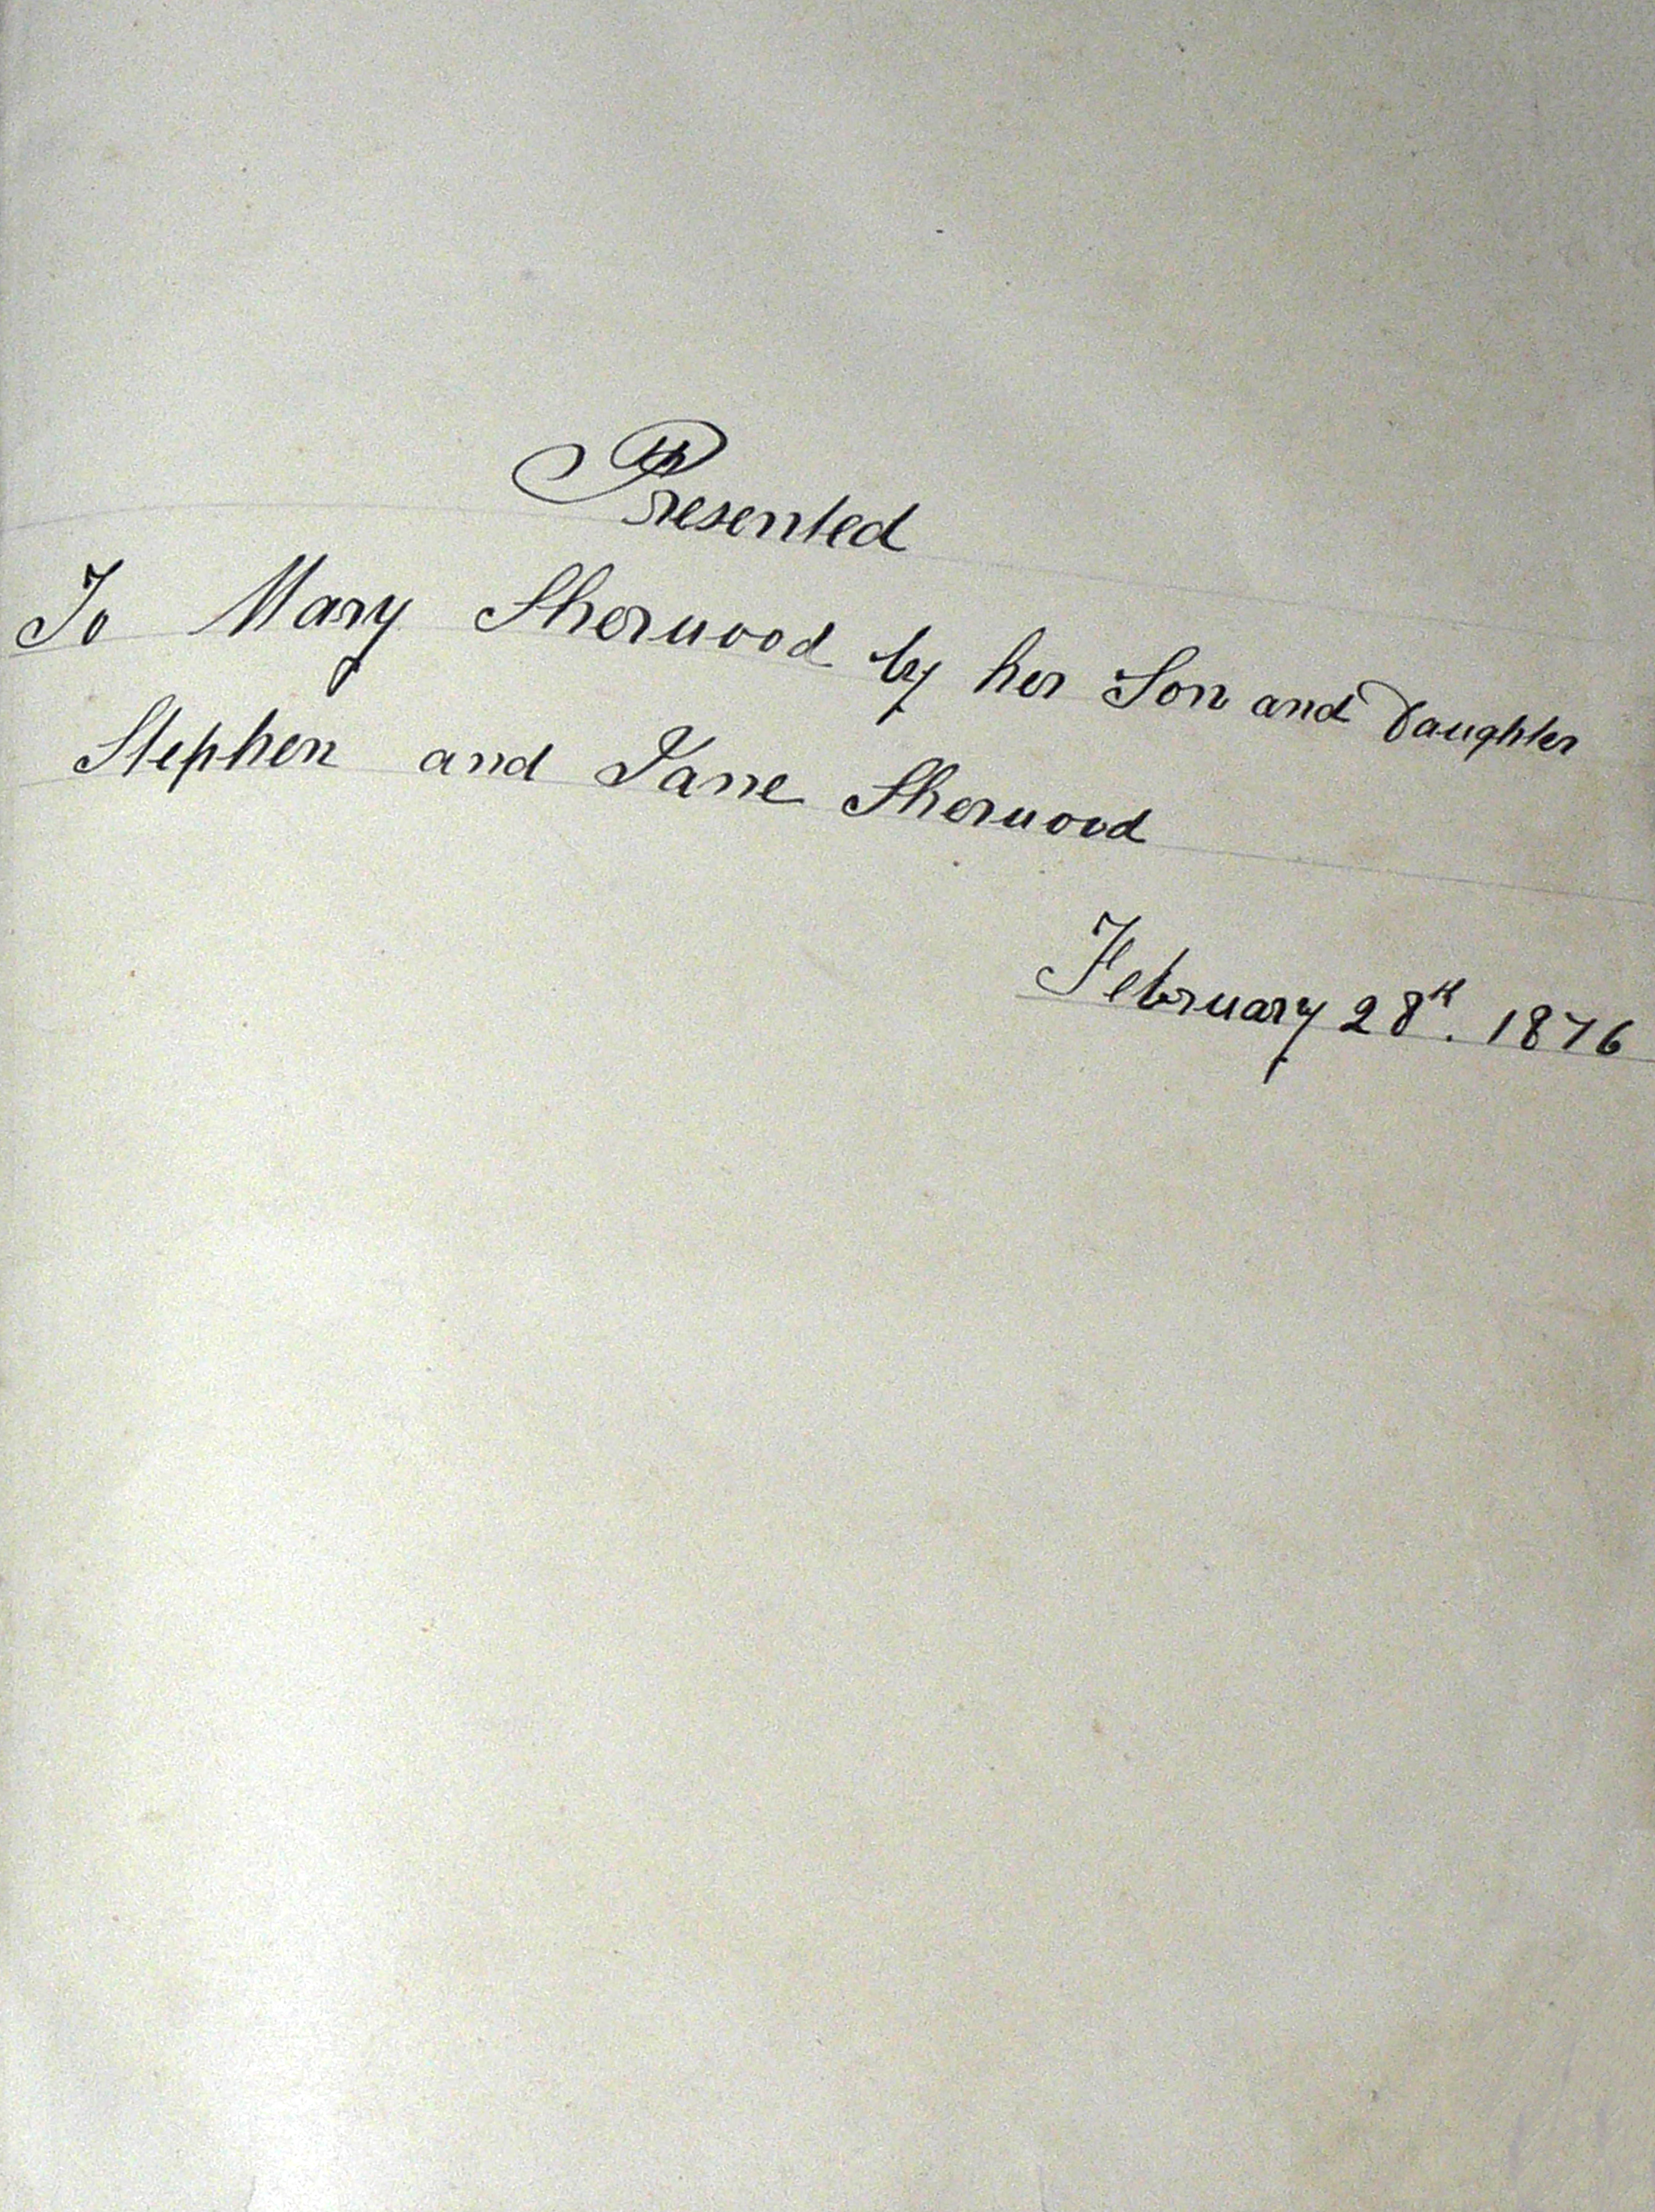 Presented
To Mary Sherwood by her Son and Daughter
Stephen and Jane Sherwood
February 28th. 1876